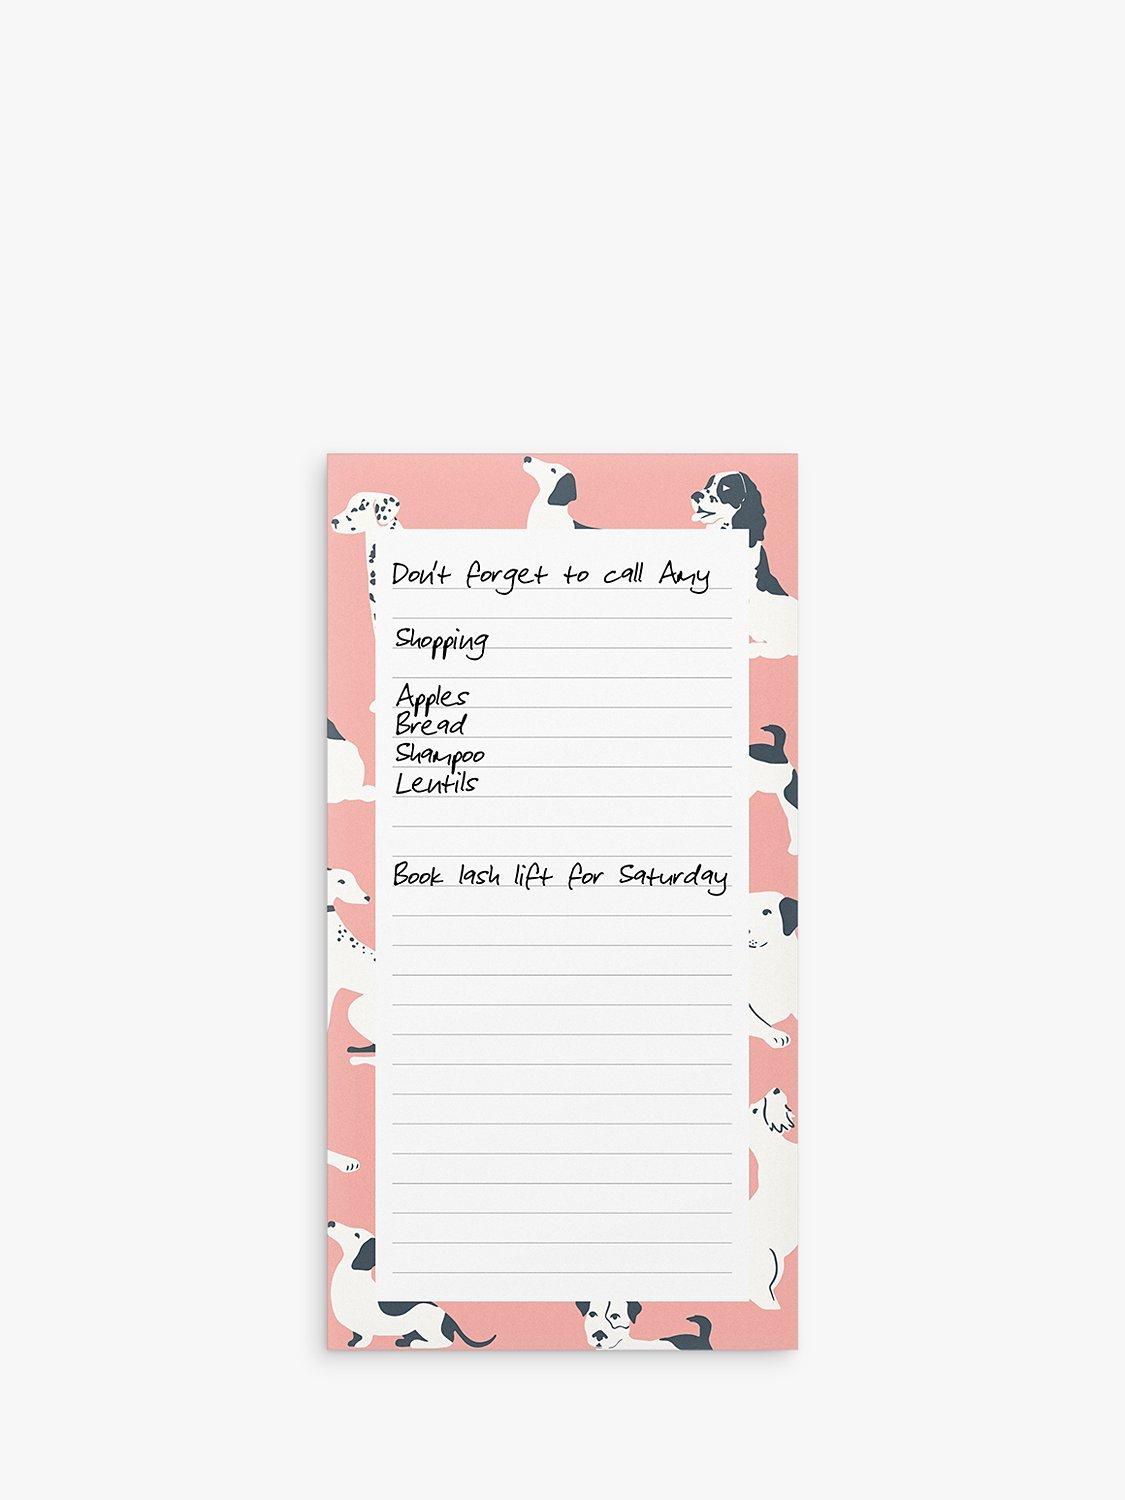 Don't forget to call Amy
Shopping
Apples
Bread
Shampoo
Lentils
Book lash lift for Saturday